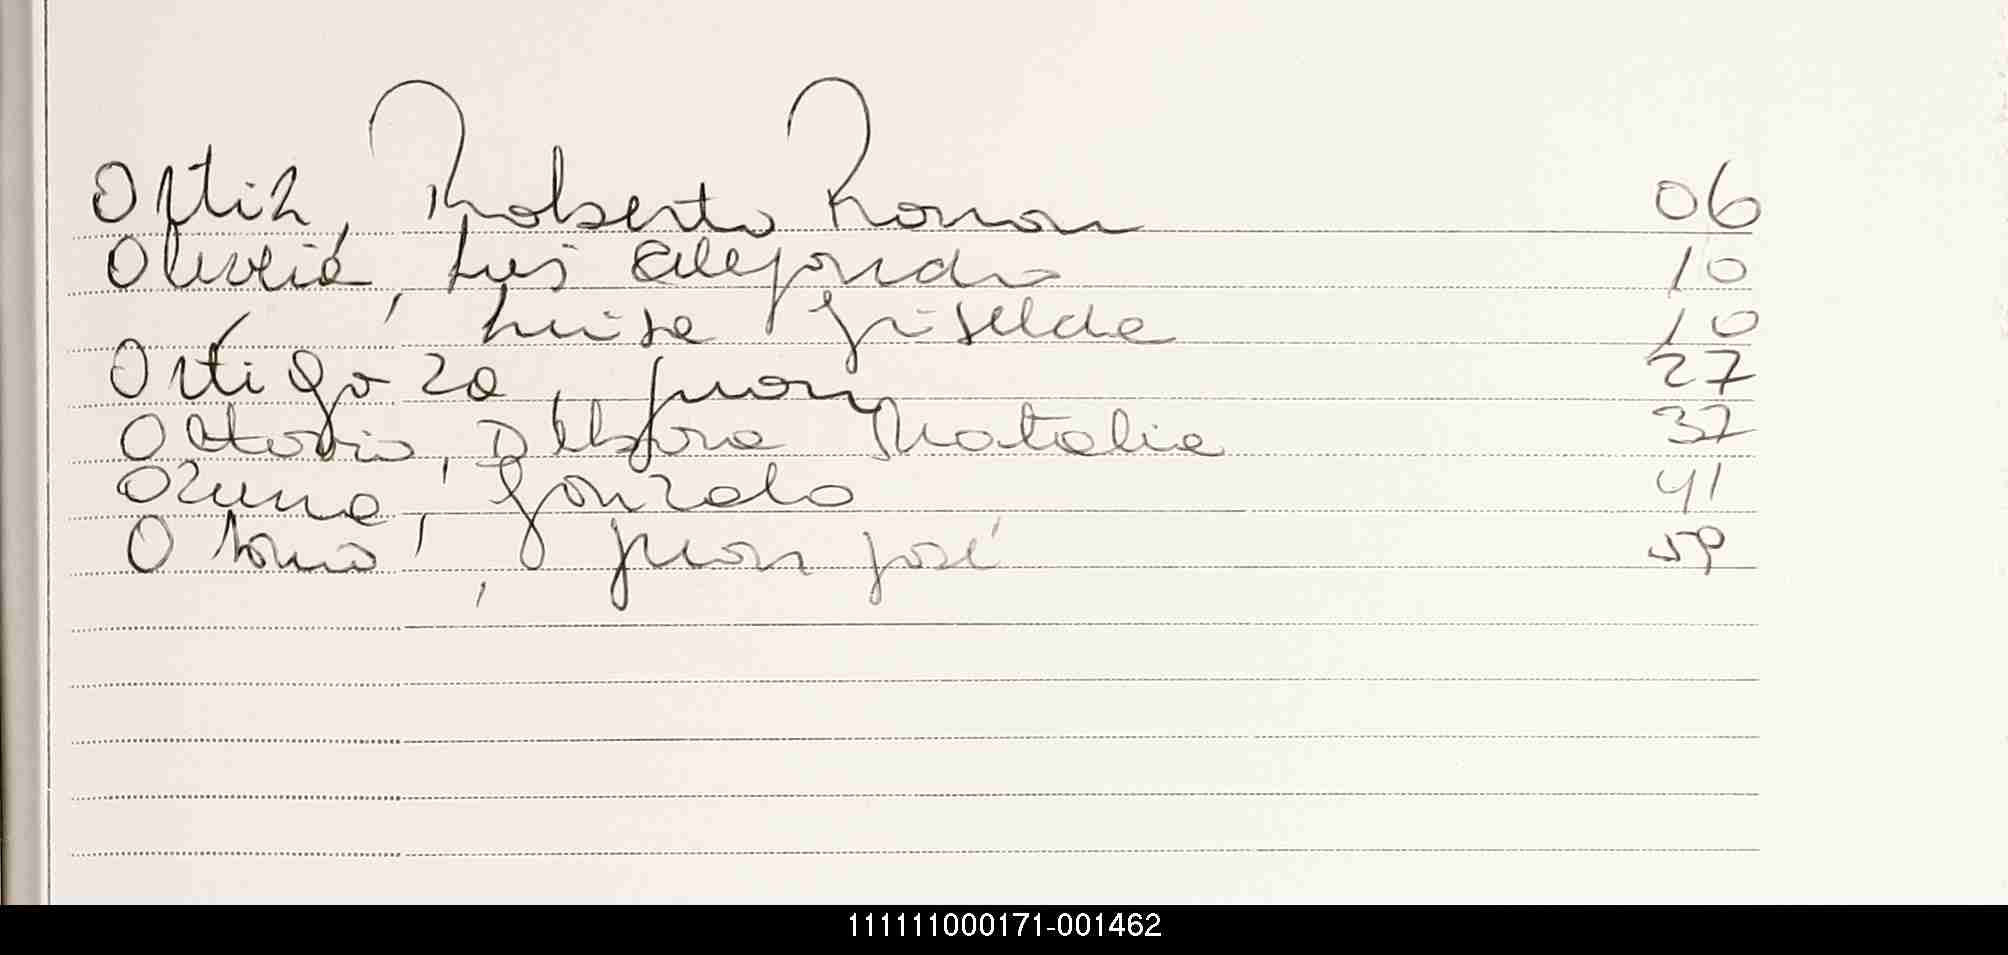 Ortiz, Roberto Ramon 06
Oliveia, Luis Alejandro 10
Luisa Griselda 10
Ortigoza, Juan 27
Octavio, Debora Natalia 37
Ozuna, Gonzalo 41
Otono, Juan José 59
111111000171-001462